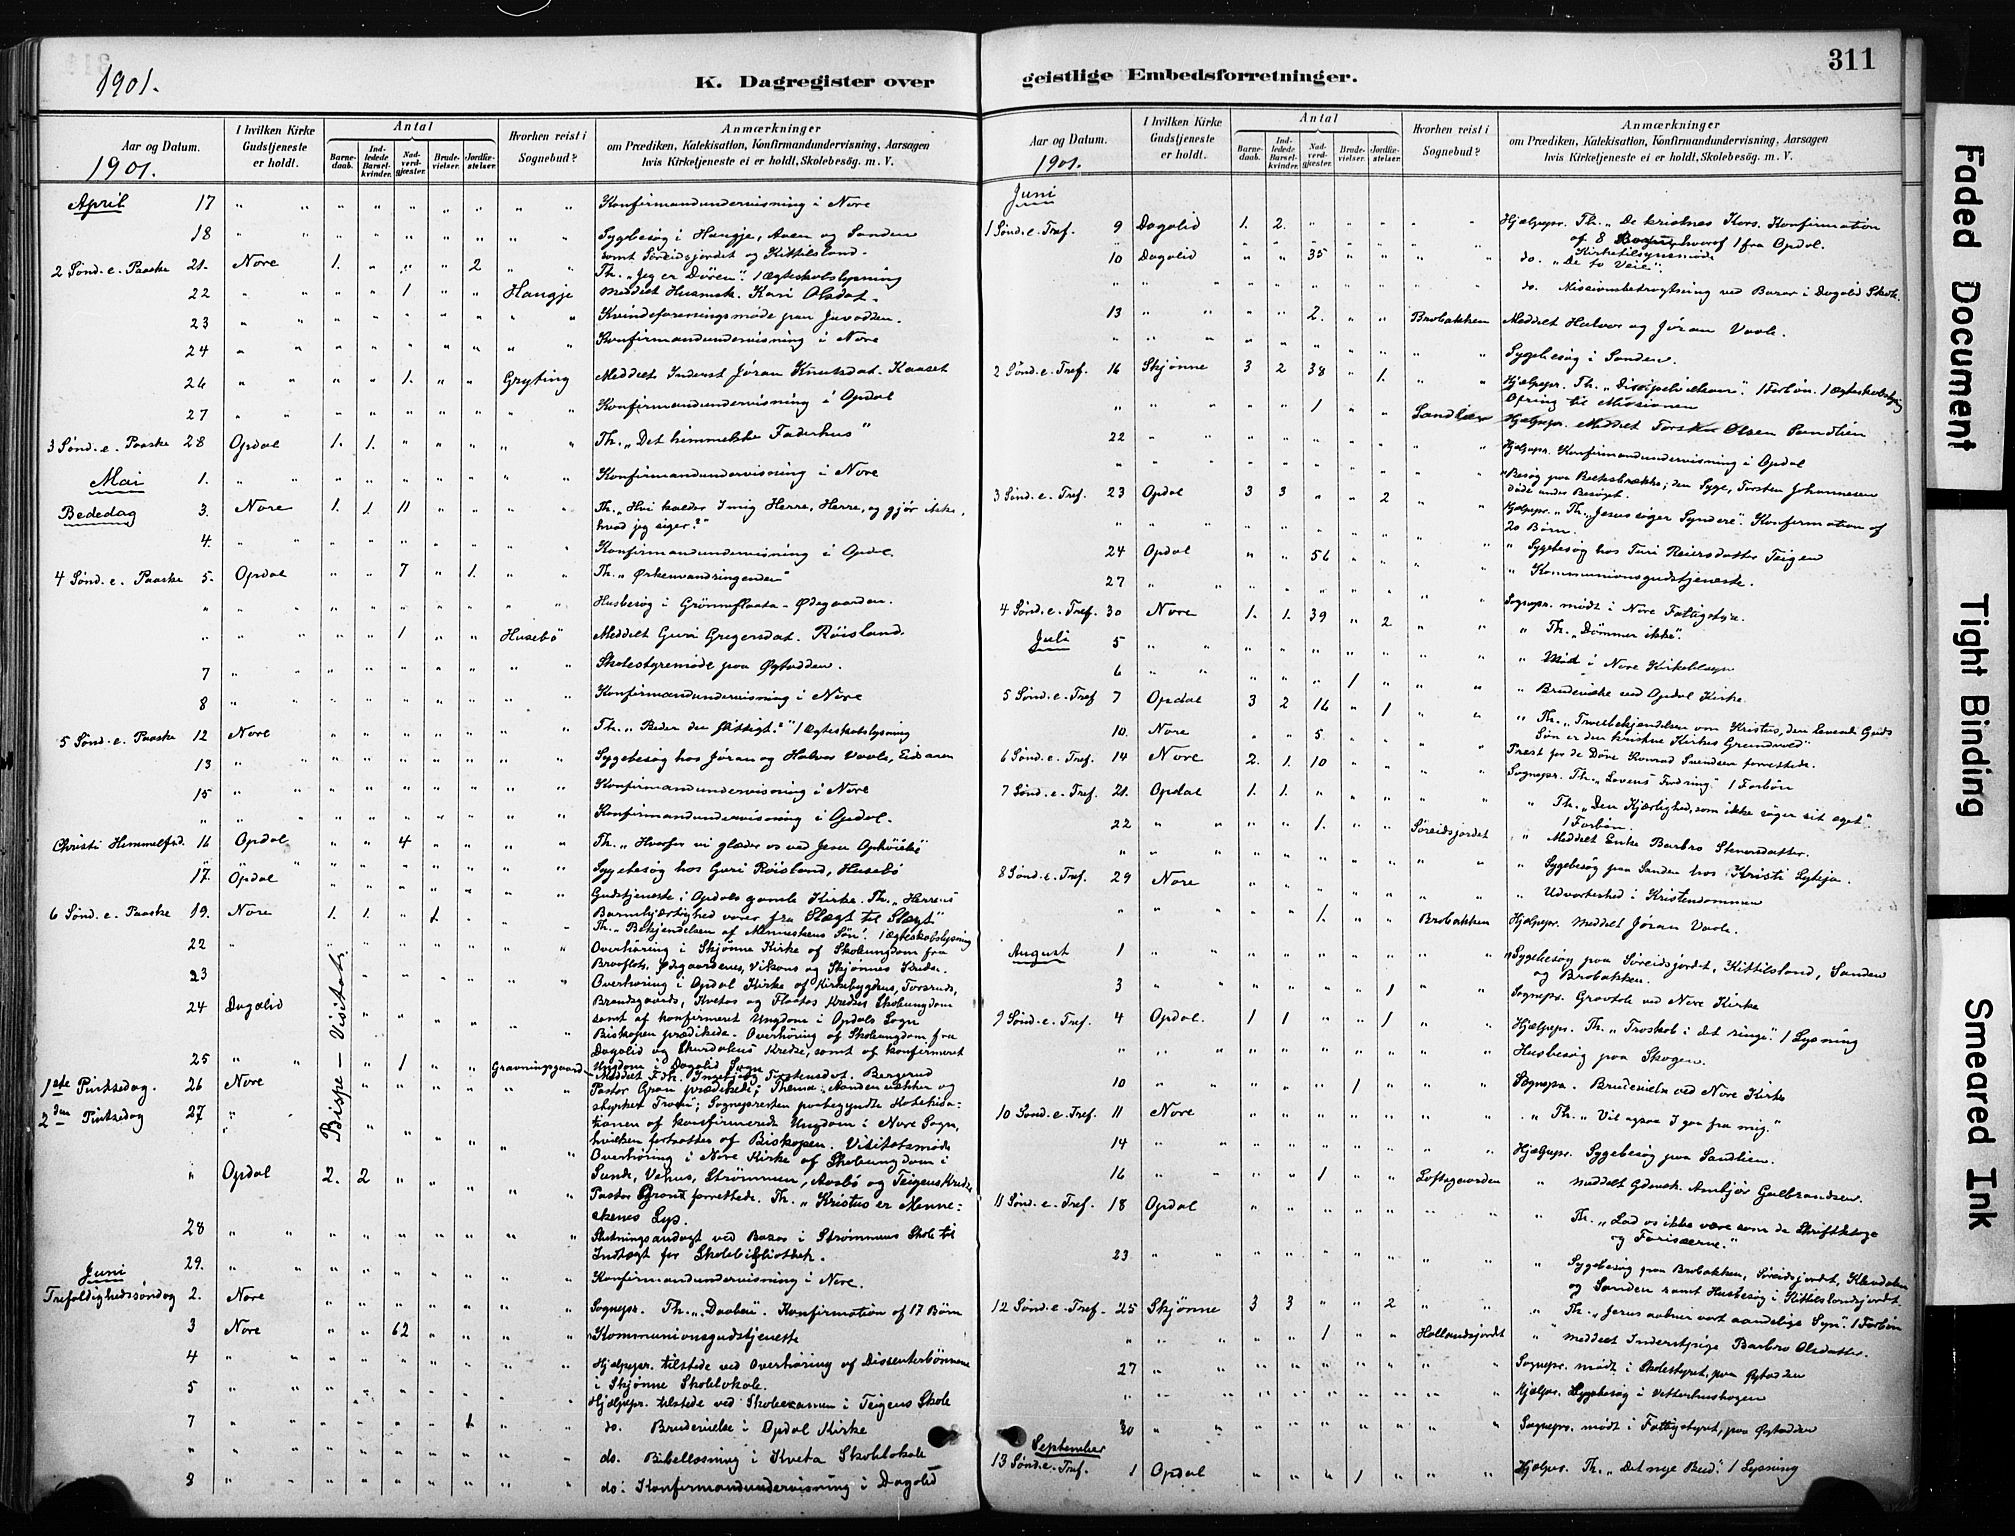 1901.
K. Dagregister over
Aar og Datum. 1901.
I hvilken Kirke Gudstjeneste er holdt.
Antal
Barnedaab. Indledede Barselkvinder. Nadverdgjæster. Brudevielser. Jordfæstelser.
Hvorhen reist i Sognebud?
Anmærkninger
om Prædiken, Katekisation, Konfirmandundervisning, Aarsagen hvis Kirketjeneste ei er holdt, Skolebesøg. m. V.
April 17 " " " " " " " " " Konfirmandundervisning i Nore
18 " " " " " " " " Sygebesøg i Haugje, Aasen og Sanden
samt Søreidsjordet og Kittilsland.
2 Sønd. e. Paaske 21. Nore 1. " " " 2 " " Th. "Jeg er Døren". 1 Ægteskabslysning
22 " " " " 1 " " Haugje Meddelt Husmsk. Kari Olsdat.
23 " " " " " " " " " Kvindeforeningsmøde paa Juvodden.
24 " " " " " " " " " Konfirmandundervisning i Nore
26 " " " " 1. " " Gryting Meddelt Inderst Jøran Knutsdat. Kaaset
27 " " " " " " " " " Konfirmandundervisning i Opdal
3 Sønd. e. Paaske 28 Opdal 1. 1. " " " " " Th. "Det himmelske Faderhus"
Mai 1. " " " " " " " " " Konfirmandundervisning i Nore
Bededag 3. Nore 1. 1. 11 " " " " Th. "Hvi kalder I mig Herre, Herre, og gjør ikke,
hvad jeg siger?"
4. " " " " " " " " " Konfirmandundervisning i Opdal.
4 Sønd. e. Paaske 5. Opdal " " 7 " 1. " " Th. "Ørkenvandringenden"
" " " " " " " " " Husbesøg i Grønneflaata - Ødegaarden.
" " " " " 1 " " Husebø Meddelt Guri Gregersdat. Røisland.
7 " " " " " " " " Skolestyremøde paa Øytadden.
8 " " " " " " " " Konfirmandundervisning i Nore
5 Sønd. e. Paaske 12 Nore " " " " " " " Th. "Beder den flittigt?" 1 Ægteskabslysning
13 " " " " " " " " " Sygebesøg hos Jøran og Halvor Vaale, Eidaaen
15 " " " " " " " " " Konfirmandundervisning i Nore
" " " " " " " " " Konfirmandundervisning i Opdal.
Christi Himmelfsd. 16 Opdal " " 4 " " " " Th. "Hvorfor vi glæder os ved Jesu Ophøielse"
17. Opdal " " " " " " " Sygebesøg hos Guri Røisland, Husebø
Gudstjeneste i Opdals gamle Kirke. Th. "Herrens
6 Sønd. e. Paaske 19. Nore 1. 1. " 1. " " Barmhjertighed varer fra Slægt til Slægt"
Th. "Bekjendelsen af Menneskens Søn". 1 Ægteskabslysning
22 " Overhøring i Skjønne Kirke af Skoleungdom fra
Braaflots, Ødegaardenes, Vikens og Skjønnes Kredse.
23 Overhøring i Opdal Kirke af Kirkebygdens, Torsruds,
24 Dagalid Brandsgaards, Kvetos og Flaatas Kredses Skoleungdom
samt af konfirmeret Ungdom i Opdals Sogn
Biskopen prædikede. Overhøring af Skoleungdom fra
Dagalid og Skurdalens Kredse, samt af konfirmeret
Bispe – Visitats
25 " " " 1 " " Gravningsgaard Ungdom i Dagalid Sogn
Meddelt Fdr. Ingebjørg Torstensdat. Bergerud
1ste Pintsedag. 26 Nore Pastor Gran prædikede; Thema: Aanden vækker og
2den Pintsedag 27 " styrker Troen; Sognepresten paabegyndte Katekisa-
tionen af konfirmerede Ungdom i Nore Sogn,
hvilken fortsattes af Biskopen. Visitatsmøde
Overhøring i Nore Kirke af Skoleungdom i
" Opdal 2. 2 " " " " " Sunde, Vehus, Strømmen, Aasbø og Teigens Kredse
Pastor Grand forrettede. Th. "Kristus er Menne-
skenes Lys.
28 " " " " " " " " " Slutningsandagt ved Bazar i Strømmens Skole til
Indtægt for Skolebibliothek.
29. " " " " " " " " " Konfirmandundervisning i Nore.
Juni
Trefoldighedssøndag 2. Nore " " " " " " " Sognepr. Th. "Daaben". Konfirmation af 17 Børn
3 Nore " " 62 " " " " Kommunionsgudstjeneste
4 " " " " " " " " " Hjælpepr. tilstede ved Overhøring af Dissenterbørnene
i Skjønne Skolelokale.
5 " " " " " " " " " Hjælpepr. tilstede ved Skoleexamen i Teigens Skole
7 " " " " " " 1. " " do. Brudevielse i Opdal Kirke
" " " " " " " " " do. Bibellæsning i Kveta Skolelokale
8 " " " " " " " " " do: Konfirmandundervisning i Dagalid

geistlige Embedsforretninger.
311
Aar og Datum. 1901.
I hvilken Kirke Gudstjeneste er holdt.
Antal
Barnedaab. Indledede Barselkvinder. Nadverdgjæster. Brudevielser. Jordfæstelser.
Hvorhen reist i Sognebud?
Anmærkninger
om Prædiken, Katekisation, Konfirmandundervisning, Aarsagen hvis Kirketjeneste ei er holdt, Skolebesøg. m. V.
Juni
1 Sønd. e. Tref. 9 Dagalid 1. 2. " " " " " Hjælpepr. Th. "De kristnes Kors. Konfirmation
af 8 Børn, hvoraf 1 fra Opdal.
Kirketilsynsmøde
10 Dagalid " " 35 " " " " do. "De to Veie".
" " " " " " " " " do. Missionsbetragtning ved Bazar i Dagalid Skole.
13 " " " " 2. " " Brobakken Meddelt Halvor og Jøran Vaale.
" " " " " " " " " Sygebesøg i Sanden.
2 Sønd. e. Tref. 16 Skjønne 3 2 38 " 1. " " Hjælpepr. Th. "Discipelvielsen". 1 Forbøn. 1 Ægteskabslysning
Ofring til Missionen
" " " " 1 " " Sandlien Hjælpepr. Meddelt Torsten Olsen Sandlien
22 " " " " " " " " Hjælpepr. Konfirmandundervisning i Opdal
" " " " " " " " " " Besøg paa Bakkebrække; den Syge, Torsten Johannesen
døde under Besøget.
3 Sønd. e. Tref. 23 Opdal 3 3 " " 2 " " Hjælpepr. Th. "Jesus søger Syndere". Konfirmation af
20 Børn.
" " " " " " " " " " Sygebesøg hos Turi Reiersdatter Teigen
24 Opdal " " 56 " " " " " Kommunionsgudstjeneste.
27 " " " " " " " " " Sognepr. mødt i Nore Fattigstyre.
4 Sønd. e. Tref. 30 Nore 1. 1. 39 " 2 " " " Th. "Dømmer ikke".
Juli 5 " " " " " " " " " " Mød i Nore Kirketilsyn
6 " " " " " 1 " " " " Brudevielse ved Opdal Kirke
5 Sønd. e. Tref 7 Opdal 3 2 16 " 1 " " " Th. "Troesbekjendelsen om Kristus, den levende Guds
Søn er den kristne Kirkes Grundvold"
10. Nore " " 5 " " " " Prest for de Døve Konrad Svendsen forrettede.
6 Sønd. e. Tref. 14 Nore 2. 1. 10 " " " " Sognepr. Th. "Lovens Fordring" 1 Forbøn
7 Sønd. e. Tref. 21. Opdal 1. 1. " " " " " " Th. "Den Kjærlighed, som ikke søger sit eget".
1 Forbøn
22 " " " " 1. " " Søreidsjordet " Meddelt Enke Barbro Stenersdatter.
" " " " " " " " " " Sygebesøg paa Sanden hos Kristi Lykja.
8 Sønd. e. Tref. 29 Nore " " " " " " " " Udvorteshed i Kristendommen
" " " " 1. " " Brobakken Hjælpepr. Meddelt Jøran Vaale.
August 1 " " " " " " " " " " Sygebesøg paa Søreidsjordet, Kittilsland, Sanden
og Brobakken.
3 " " " " " " 1 " " Sognepr. Gravtale ved Nore Kirke
9 Sønd. e. Tref. 4 Opdal. 1 1 " " 1 " " Hjælpepr. Th. "Troskab i det ringe". 1 Lysning
" " " " " " " " " Husbesøg paa Skogen.
10 " " " " " 1 " " " Sognepr. Brudevielse ved Nore Kirke
10 Sønd. e. Tref. 11 Nore " " " " " " " " Th. "Vil ogsaa I gaa fra mig."
14 " " " " " " " " " Hjælpepr. Sygebesøg paa Sandlien.
16 " " " " 1 " " Loftsgaarden " Meddelt Gdmsk. Ambjør Gulbrandsen.
11 Sønd. e. Tref. 18 Opdal " " " " " " " " Th. "Lad os ikke være som de Skriftkloge
og Fariseerne."
23 " " " " " " " " " " Sygebesøg paa Brobakken, Søreidsjordet, Klevdalen
og Sanden samt Husbesøg i Kittilslandsjordet.
12 Sønd. e. Tref. 25 Skjønne 3 3 " " 2 " " " Th. "Jesus aabner vort aandelige Syn". 1 Forbøn
" " " " 1 " " Hollandsjordt " Meddelt Inderstpige Barbro Olsdatter.
27 " " " " " " " " " Sognepr. mødt i Skolestyret, paa Øytadden
" " " " " " " " " Hjælpr. Sygebesøg i Vetterhushagen
30 " " " " " " " " " Sognepr. mødt i Fattigstyret, paa Øytadden
September
13 Sønd. e. Tref. 1 Opdal " " " 1 " " " Hjælpr. Th. "Det nye Bud". 1 Lysning

Faded Document
Tight Binding
Smeared Ink